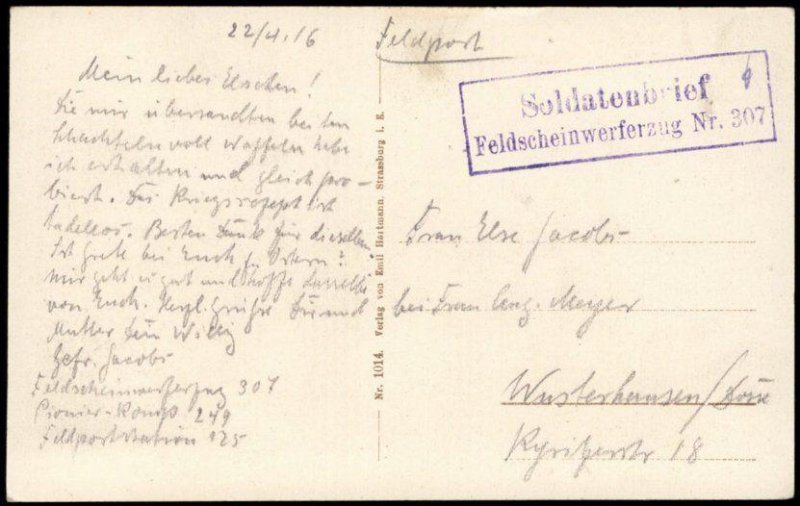 22/4.16
Mein liebes Elschen!
Die mir übersandten beiden
Schachteln voll Waffeln habe
ich erhalten und gleich pro-
biert. Das Kriegsrezept ist
tadellos. Besten Dank für dieselben
Ist Grete bei Euch zu Ostern?
Mir geht es gut und hoffe dasselbe
von Euch. Herzl. Grüße Dir und
Mutter Dein Willy
Gefr. Jacobs
Feldscheinwerferzug 307
Pionier-Komp. 249
Feldpoststation 125
Nr. 1014. Verlag von Emil Hartmann, Strassburg i. E.
Feldpost
Soldatenbrief
Feldscheinwerferzug Nr. 307
Frau Else Jacobs
bei Frau Aug. Meyer
Wusterhausen/Dosse
Kyritzerstr 18